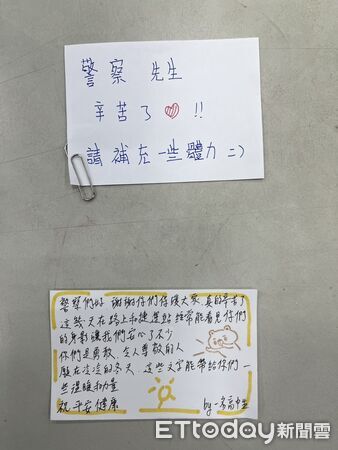 警察 先生
辛苦了 ❤ !!
請補充一些體力 =)
警察們好 謝謝你們保護大眾 真的辛苦了
這幾天在路上和捷運站經常能看見你們
的身影讓我們安心了不少
你們是勇敢、令人尊敬的人
願在冷冷的冬天，這些文字能帶給你們一
些溫暖和力量
祝 平安健康
by 一名高中生
ETtoday新聞雲